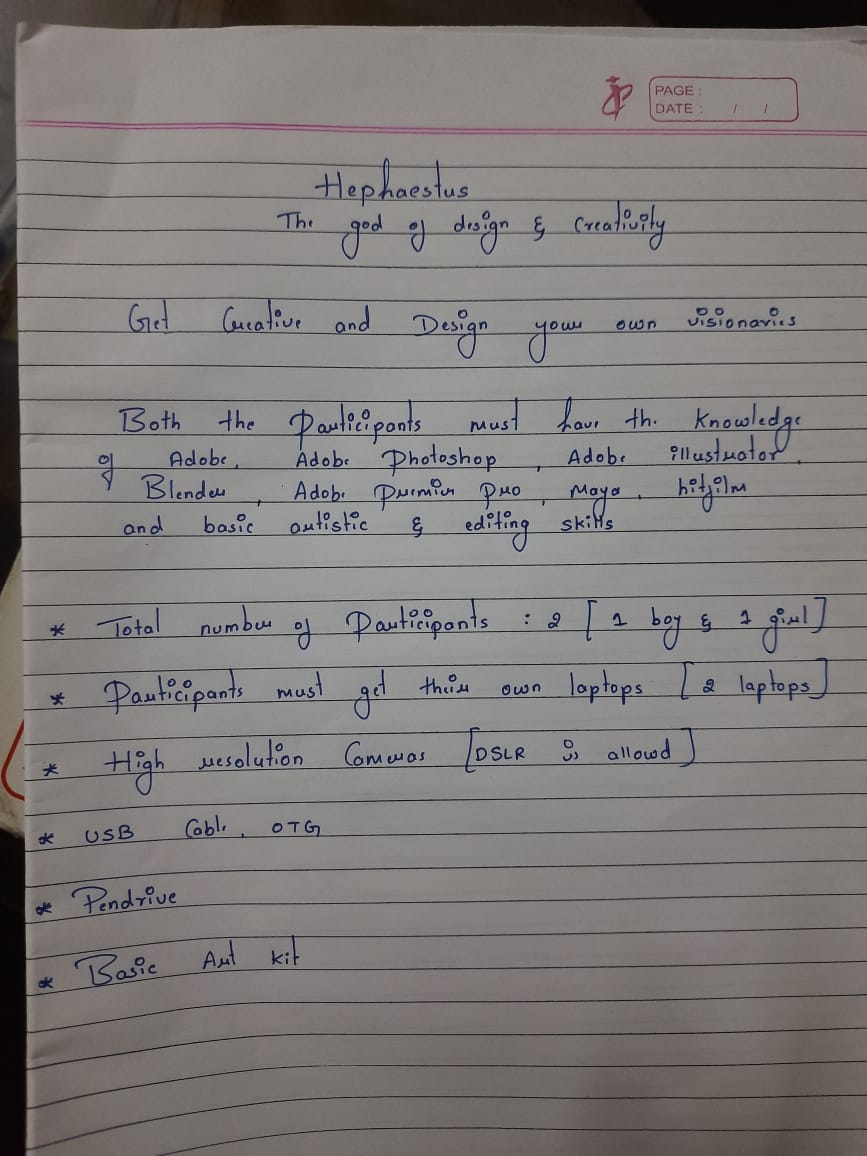 PAGE :
DATE : / /
Hephaestus
The god of design & Creativity
Get Creative and Design your own visionaries
Both the Participants must have the Knowledge
of Adobe, Adobe Photoshop, Adobe illustrator,
Blender, Adobe Premier pro, Maya, hitfilm
and basic artistic & editing skills
* Total number of Participants : 2 [ 1 boy & 1 girl ]
* Participants must get their own laptops [ 2 laptops ]
* High resolution Cameras [ DSLR is allowd ]
* USB Cable, OTG
* Pendrive
* Basic Art kit